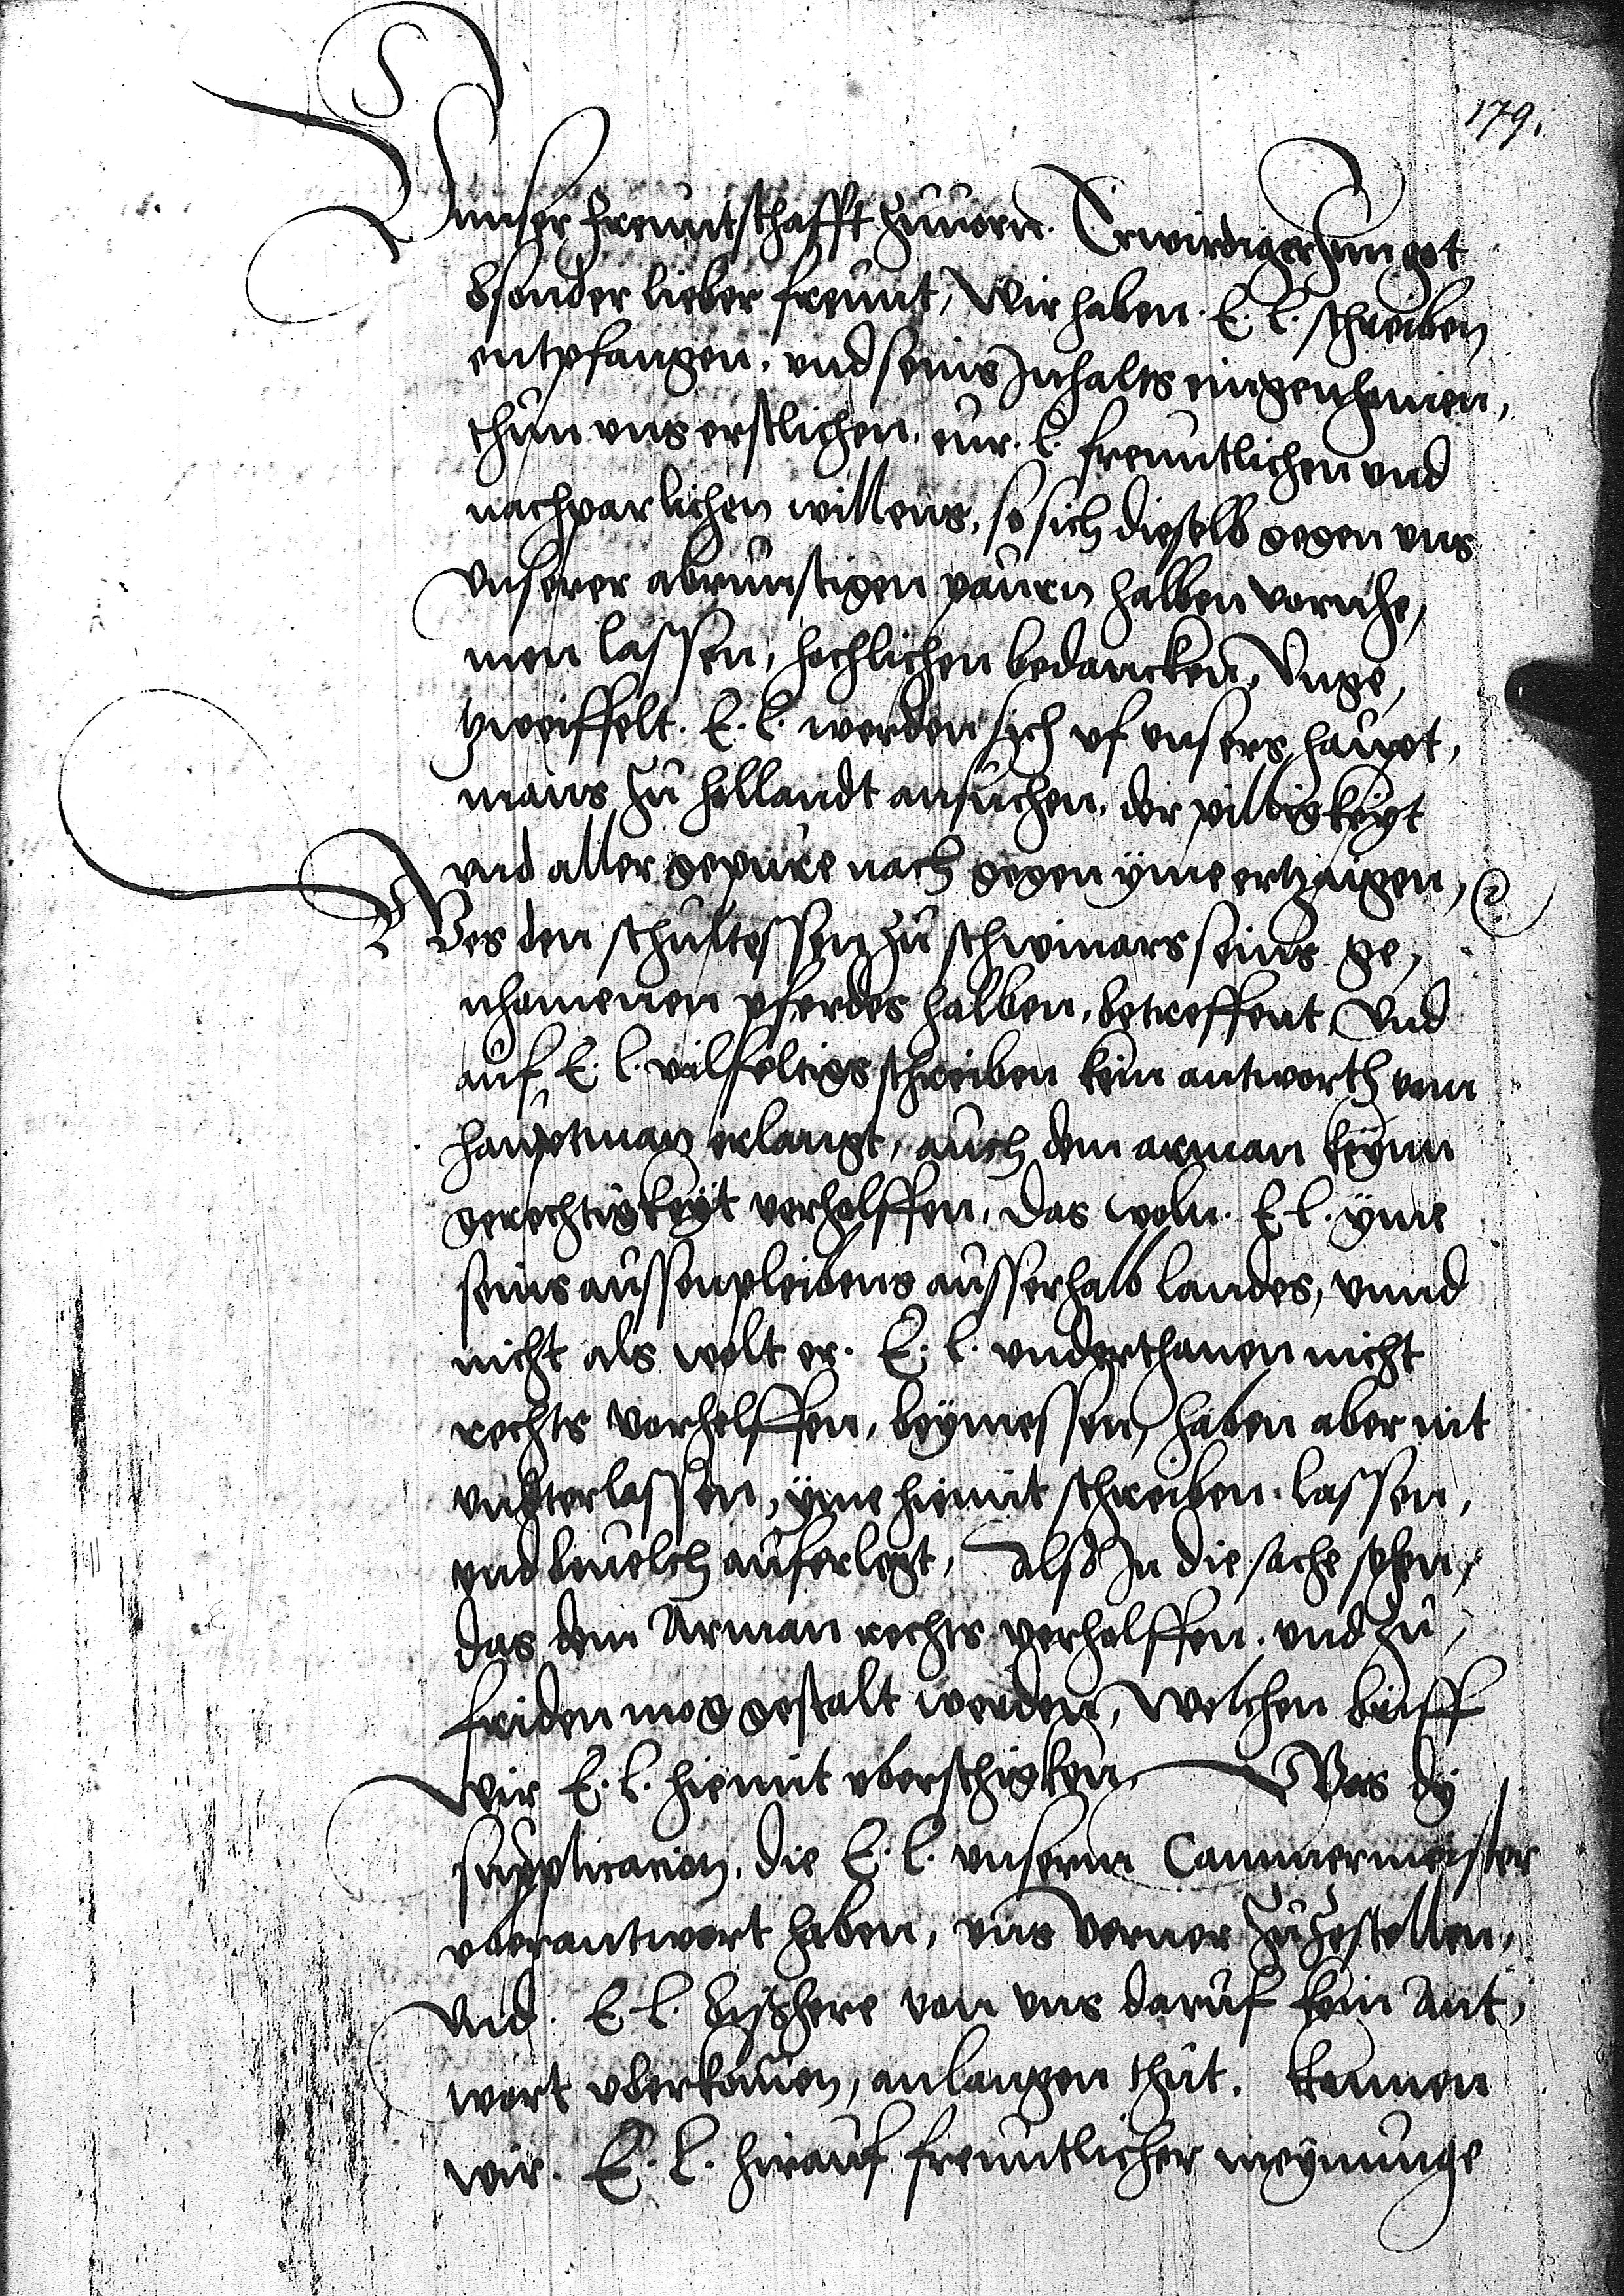 179.
Vnnser freuntschafft zuuorn. Erwirdiger Inn got
bsonder lieber freunt, Wir haben. E. l. schreiben
entpfangen. vnd seins Inhalts eingenhomen,
thun vns erstlichen. eur. l. freuntlichen vnd
nachparlichen willens, so sich dieselb gegen vns
vnserer abrunstigen paurn halben vornhe,
men lassen, hochlichen bedancken, Vnge,
tzweiffelt. E. l. werden sich vf vnsers haupt,
mans zu hollandt ansuchen. der pilligkeyt
vnd aller gepure nach gegen yme ertzaigen,
Wes den schultessen zu schwinars seins ge,
nhomenen pferdes halben, betreffent, Vnd
auf E. l. vilfeltigs schreiben kein antworth vom
hauptman erlangt, auch dem arman keynn
gerechtigkeyt verholffen, das woln. E l. yme
seins aussenpleibens ausserhalb landes, vnnd
nicht als wolt er. E. l. vnderthanen nicht
rechts vorhelffen, beymessen, haben aber nit
vndterlassen, yme hiemit schreiben. lassen,
vnd beuelch auferlegt, also In die sache sehen,
das dem Arman rechts verholffen. vnd zu,
friden mog gestalt werden, Welchen briff
Wir E. l. hiemit vberschigken, Was dy
supplicacion. die E. l. vnserm Cammermeister
vberantwort haben, vns verner zuzestellen,
Vnd. E l. bißhere von vns daruf kein Ant,
wort vberkomen, anlangen thut. konnen
wir. E. l. hirauf freuntlicher meynunge